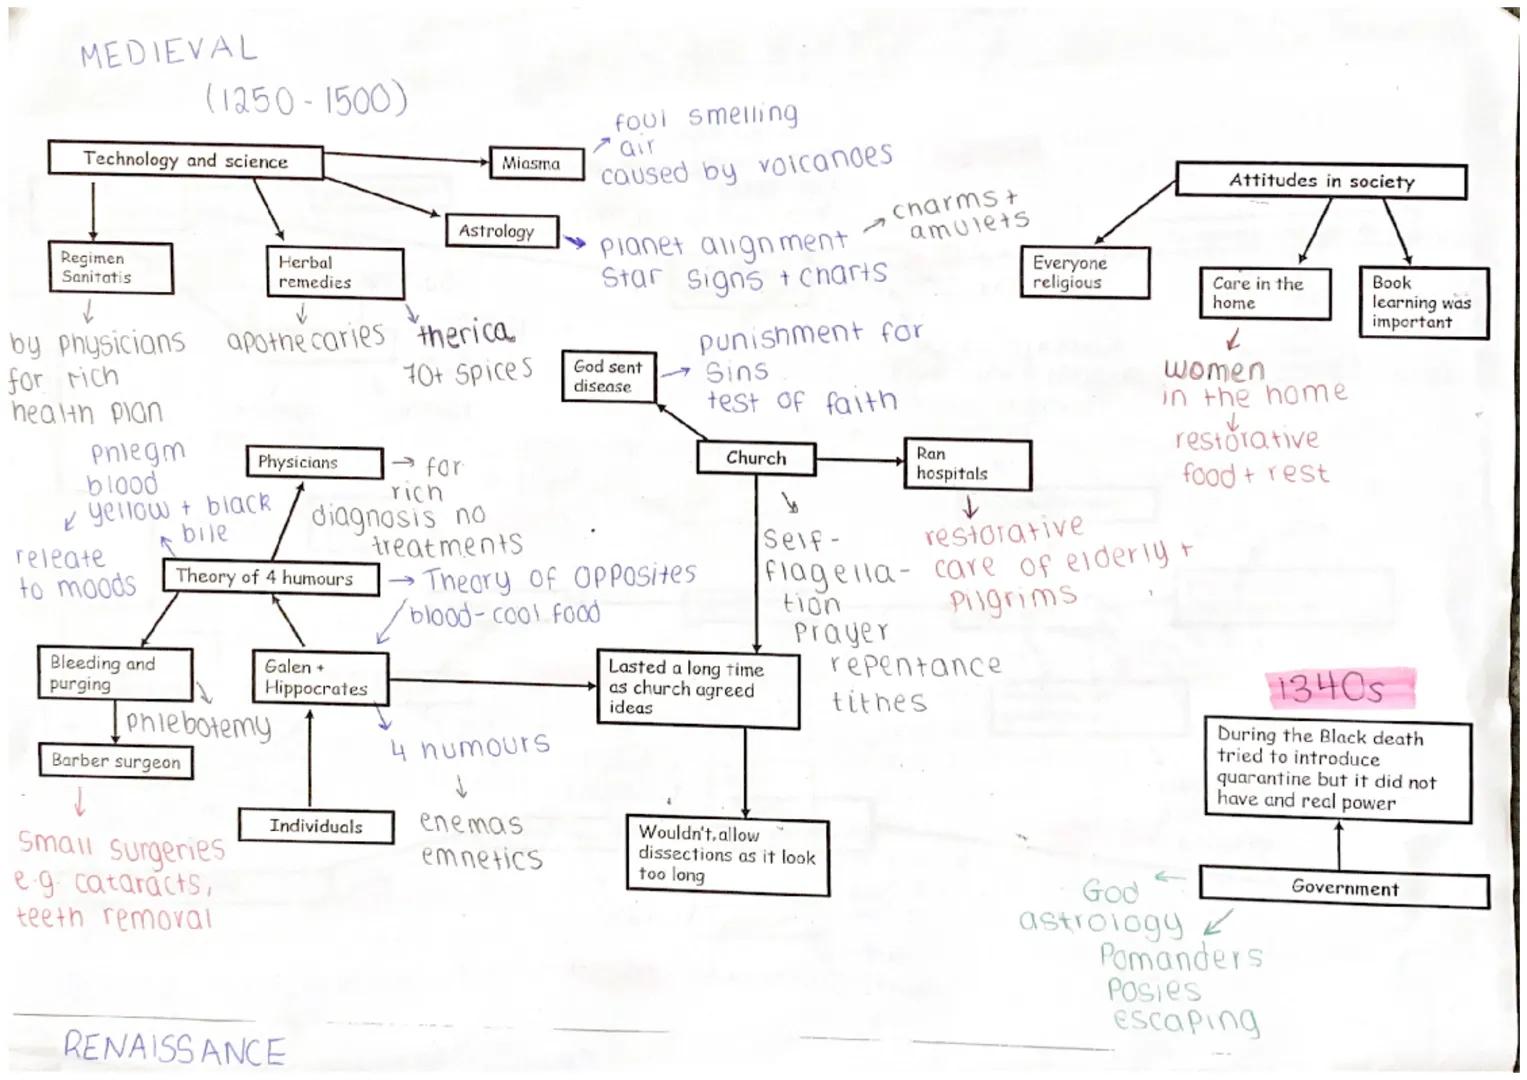 MEDIEVAL
(1250 - 1500)
Technology and science
Miasma
foul smelling
air
caused by volcanoes
Astrology
planet alignment
star signs + charts
charms +
amulets
Regimen
Sanitatis
by physicians
for rich
health plan
Herbal
remedies
apothecaries
therica
70+ spices
Attitudes in society
Everyone
religious
Care in the
home
women
in the home
restorative
food + rest
Book
learning was
important
God sent
disease
punishment for
sins
test of faith
Church
Ran
hospitals
restorative
care of elderly +
pilgrims
self-
flagella-
tion
prayer
repentance
tithes
Physicians
for
rich
diagnosis no
treatments
phlegm
blood
yellow + black
bile
releate
to moods
Theory of 4 humours
Theory of opposites
blood - cool food
Bleeding and
purging
phlebotemy
Barber surgeon
small surgeries
e.g. cataracts,
teeth removal
Galen +
Hippocrates
4 humours
enemas
emnetics
Individuals
Lasted a long time
as church agreed
ideas
Wouldn't, allow
dissections as it look
too long
1340s
During the Black death
tried to introduce
quarantine but it did not
have and real power
Government
God
astrology
Pomanders
Posies
escaping
RENAISSANCE